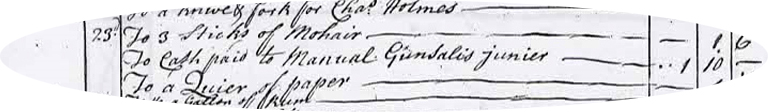 To a knife & fork for Chas. Holmes
23d To 3 Sticks of Mohair — 1 6
To Cash paid to Manual Gunsalis junier — .. 1 10 —
To a Quier of paper
To a Gallon of Rum